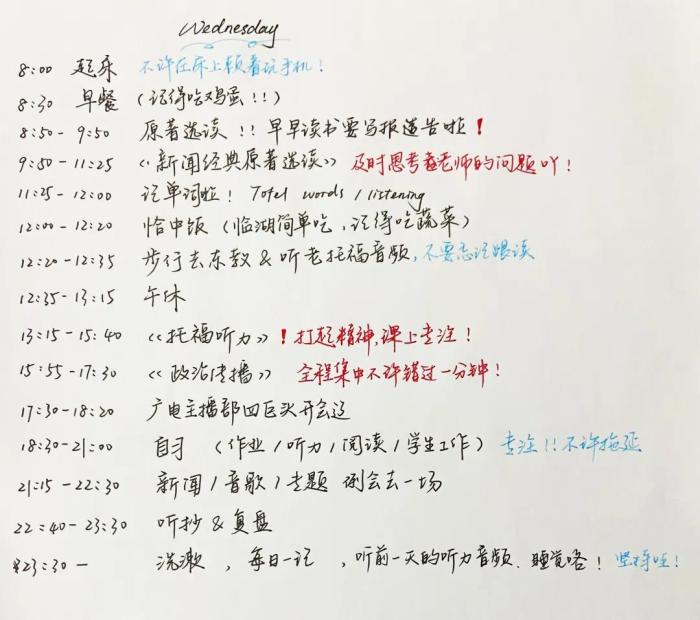 Wednesday
8:00 起床 不许在床上躺着玩手机!
8:30 早餐 (记得吃鸡蛋!!)
8:50-9:50 原著选读!!早早读书要写报告啦!
9:50-11:25 《新闻经典原著选读》 及时思考老师的问题吖!
11:25-12:00 记单词啦! Tofel words / listening
12:00-12:20 恰中饭 (临湖简单吃,记得吃蔬菜)
12:20-12:35 步行去东教 & 听老托福音频,不要忘记跟读
12:35-13:15 午休
13:15-15:40 《托福听力》!打起精神,课上专注!
15:55-17:30 《政治传播》 全程集中不许错过一分钟!
17:30-18:20 广电主播部四巨头开会辽
18:30-21:00 自习 (作业/听力/阅读/学生工作) 专注!!不许拖延
21:15-22:30 新闻/音歌/专题 例会去一场
22:40-23:30 听抄&复盘
23:30- 洗漱,每日一记,听前一天的听力音频.睡觉咯!坚持哇!